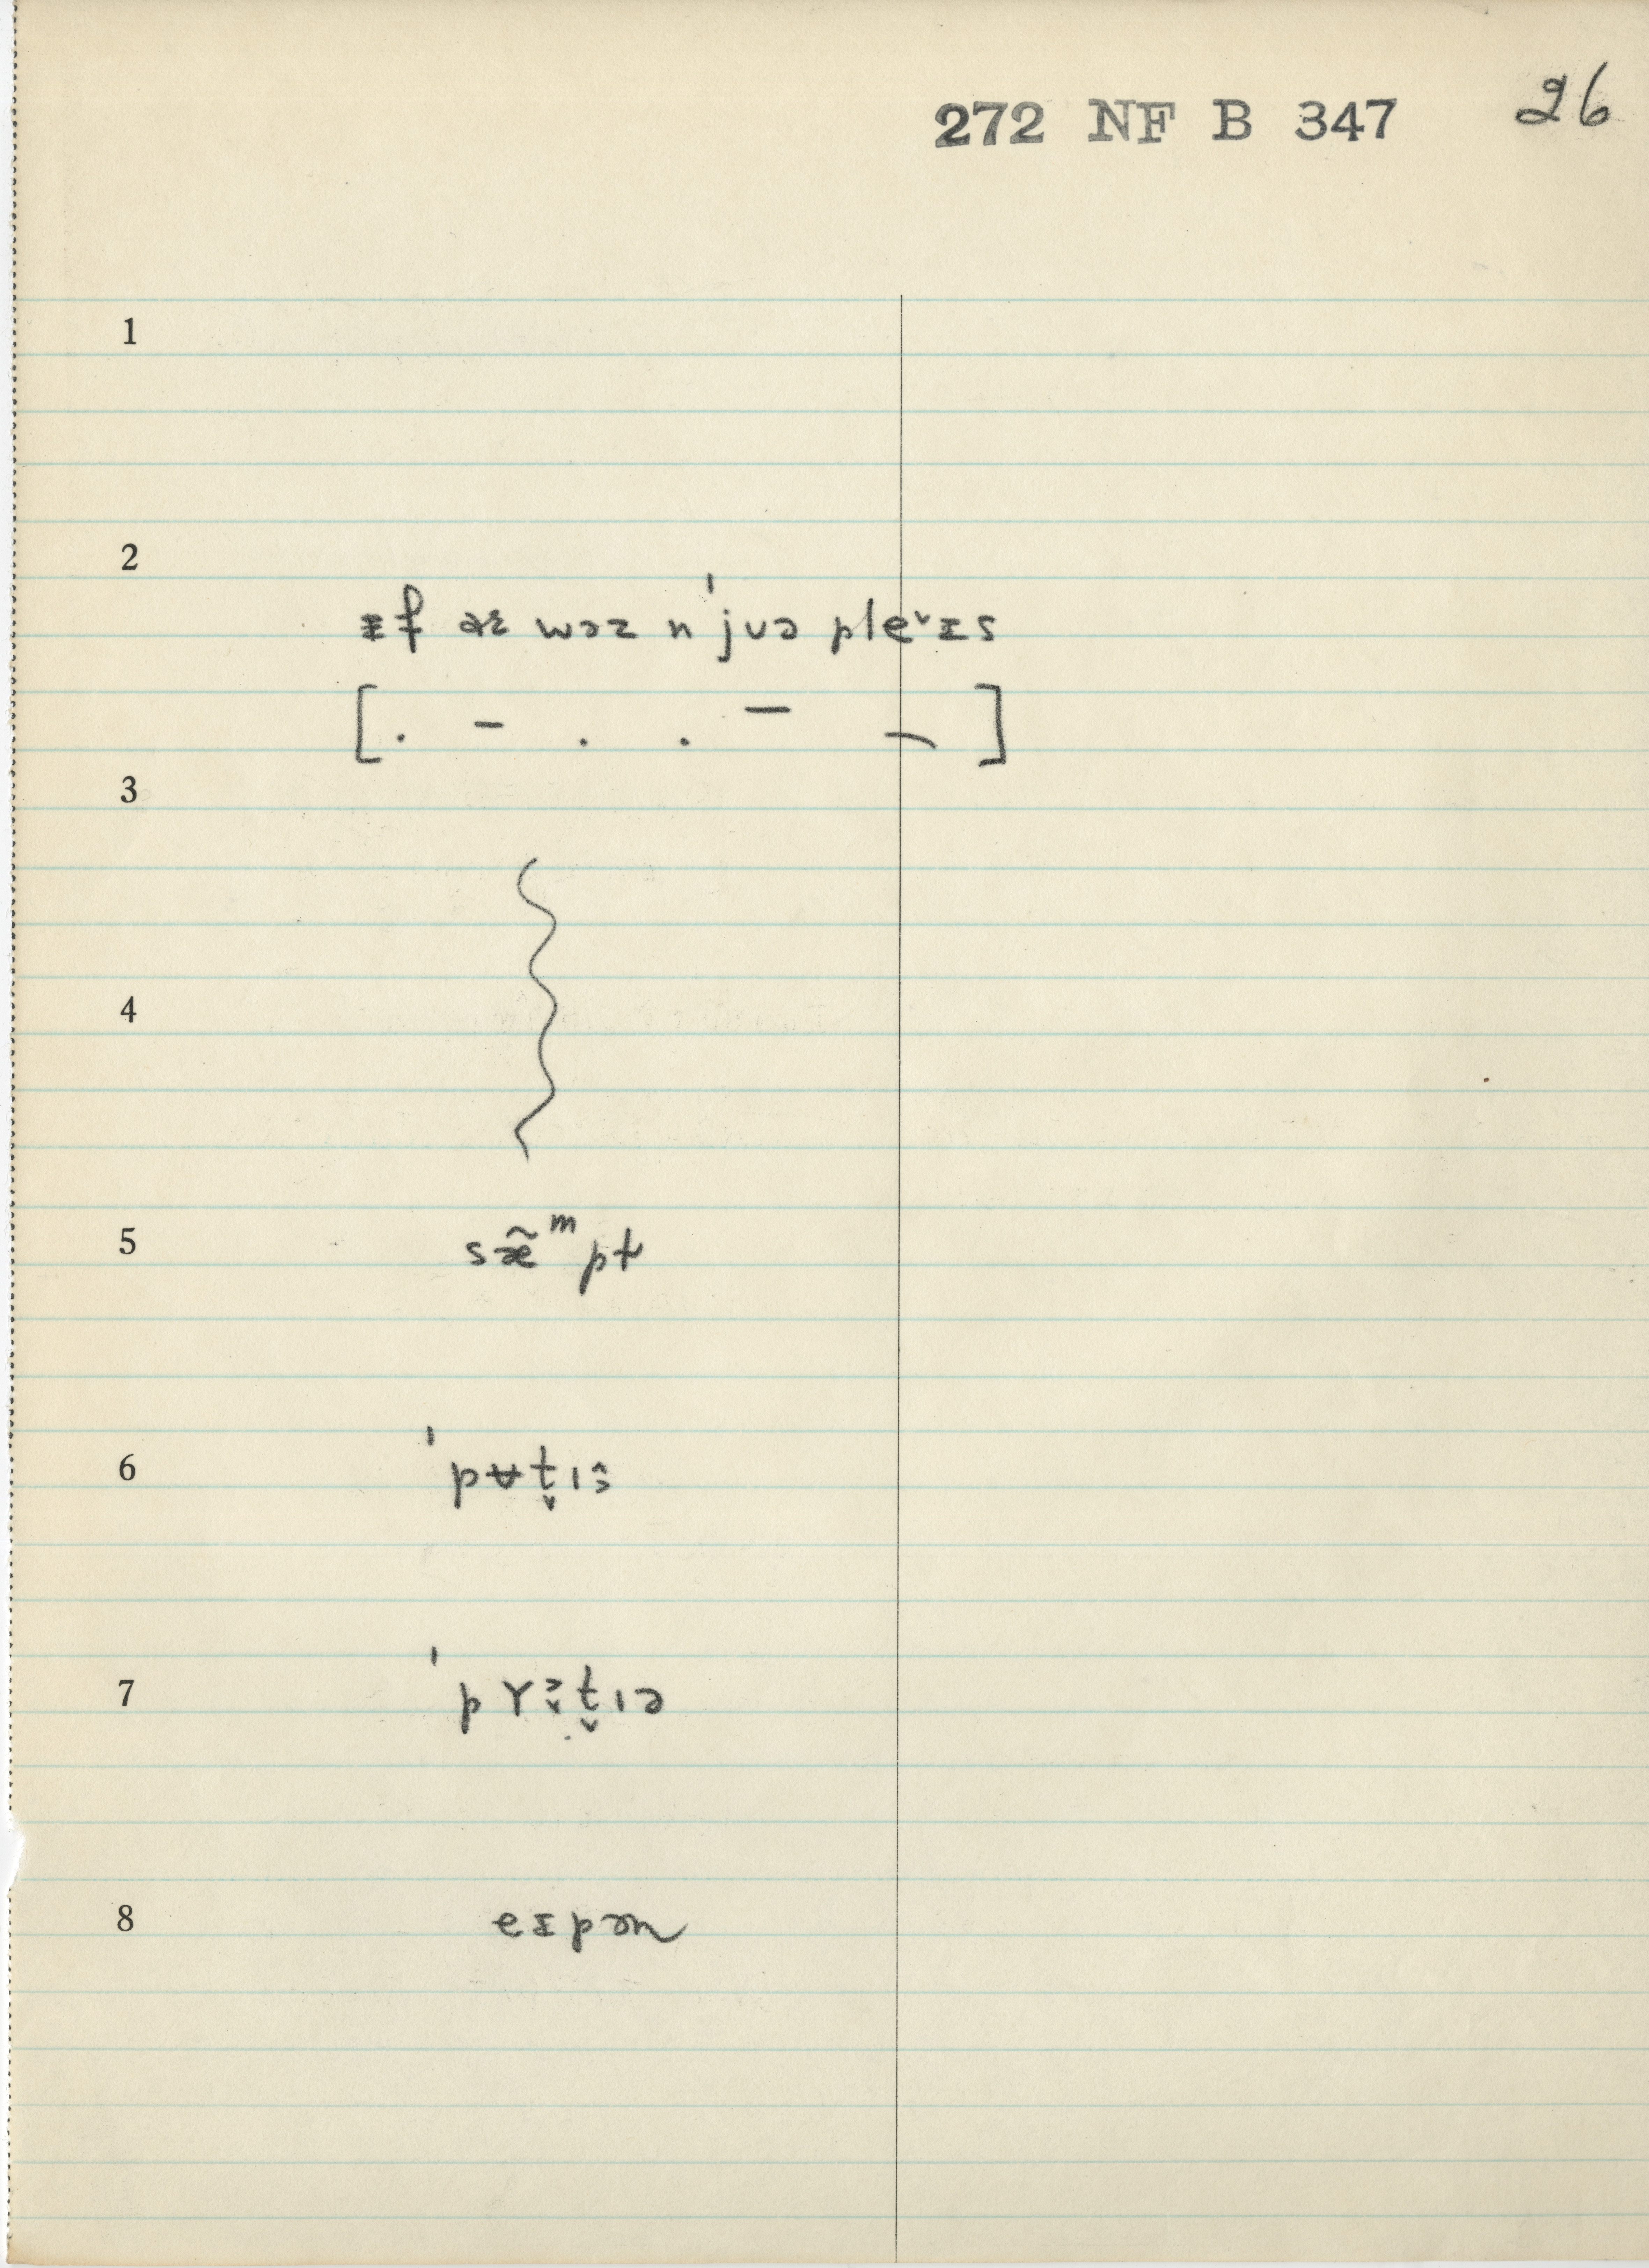 272 NF B 347 26
1
2
ᵻf əɪ wəz n ˈjʊə ple˅ɪs
[. – . . – ﹨]
3
4
5
sæ̃ᵐpt
6
ˈpʉt̬ɪə̂
7
ˈpɤə̬t̬ɪə
8
eɪpən